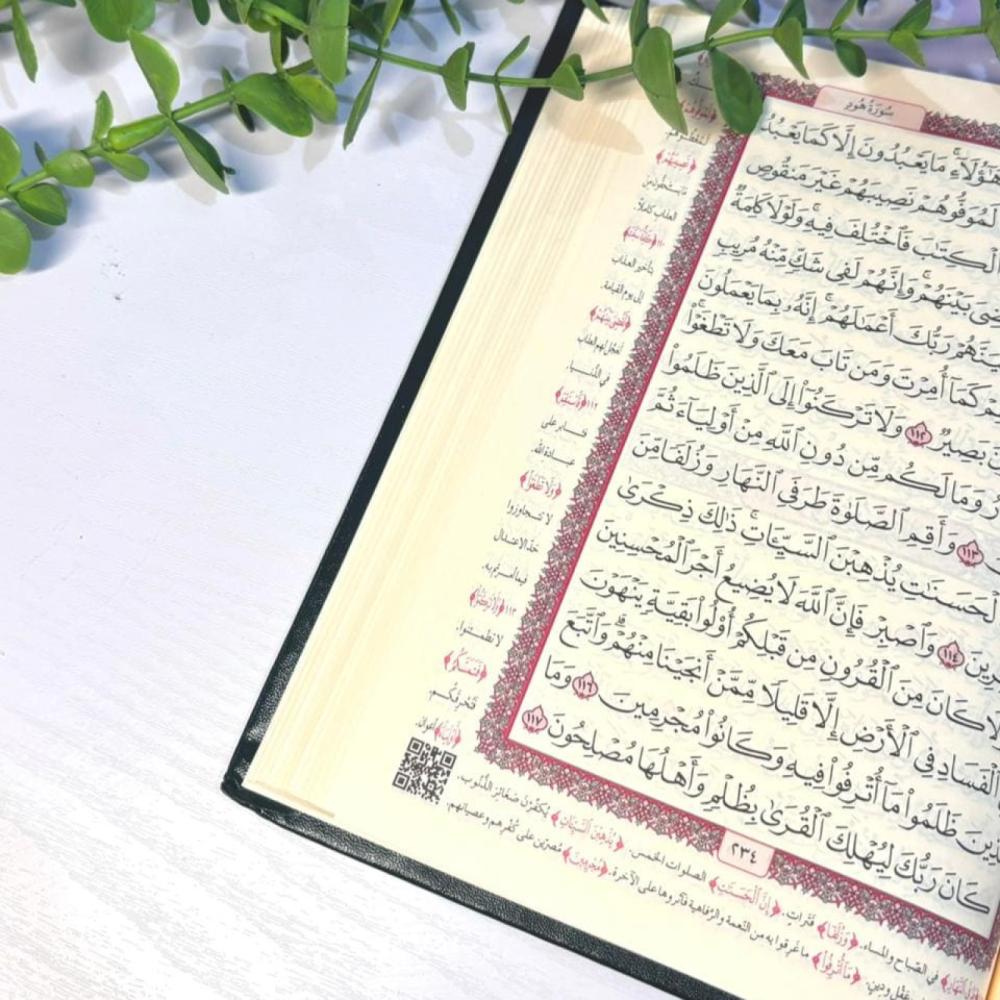 سُورَةُ هُودٍ
هَٰٓؤُلَآءِۚ مَا يَعۡبُدُونَ إِلَّا كَمَا يَعۡبُدُ
لَمُوَفُّوهُمۡ نَصِيبَهُمۡ غَيۡرَ مَنقُوصٖ
ٱلۡكِتَٰبَ فَٱخۡتُلِفَ فِيهِۚ وَلَوۡلَا كَلِمَةٞ
بَيۡنَهُمۡۚ وَإِنَّهُمۡ لَفِي شَكّٖ مِّنۡهُ مُرِيبٖ
رَبُّكَ أَعۡمَٰلَهُمۡۚ إِنَّهُۥ بِمَا يَعۡمَلُونَ
كَمَآ أُمِرۡتَ وَمَن تَابَ مَعَكَ وَلَا تَطۡغَوۡاْۚ
بَصِيرٞ ١١٢ وَلَا تَرۡكَنُوٓاْ إِلَى ٱلَّذِينَ ظَلَمُواْ
وَمَا لَكُم مِّن دُونِ ٱللَّهِ مِنۡ أَوۡلِيَآءَ ثُمَّ
١١٣ وَأَقِمِ ٱلصَّلَوٰةَ طَرَفَيِ ٱلنَّهَارِ وَزُلَفٗا مِّنَ
ٱلۡحَسَنَٰتِ يُذۡهِبۡنَ ٱلسَّيِّـَٔاتِۚ ذَٰلِكَ ذِكۡرَىٰ
١١٤ وَٱصۡبِرۡ فَإِنَّ ٱللَّهَ لَا يُضِيعُ أَجۡرَ ٱلۡمُحۡسِنِينَ
كَانَ مِنَ ٱلۡقُرُونِ مِن قَبۡلِكُمۡ أُوْلُواْ بَقِيَّةٖ يَنۡهَوۡنَ
ٱلۡفَسَادِ فِي ٱلۡأَرۡضِ إِلَّا قَلِيلٗا مِّمَّنۡ أَنجَيۡنَا مِنۡهُمۡۗ وَٱتَّبَعَ
ظَلَمُواْ مَآ أُتۡرِفُواْ فِيهِ وَكَانُواْ مُجۡرِمِينَ ١١٦ وَمَا
كَانَ رَبُّكَ لِيُهۡلِكَ ٱلۡقُرَىٰ بِظُلۡمٖ وَأَهۡلُهَا مُصۡلِحُونَ ١١٧
٢٣٤
﴿نَصِيبَهُمۡ﴾
العذاب كاملاً
تأخير العذاب
إلى يوم القيامة.
لعجل لهم العذاب
في الدنيا.
١١٢
فاثبر على
عبادة الله.
﴿وَلَا تَطۡغَوۡاْ﴾
لا تتجاوزوا
حد الاعتدال
فيما أمرتم به.
١١٣ ﴿وَلَا تَرۡكَنُوٓاْ﴾
لا تطمئنوا.
﴿فَتَمَسَّكُمُ﴾
فتحرقكم.
﴿أَوۡلِيَآءَ﴾ أعوان.
في الصباح والمساء. ﴿وَزُلَفٗا﴾ فترات. ﴿إِنَّ ٱلۡحَسَنَٰتِ﴾ الصلوات الخمس. ﴿يُذۡهِبۡنَ ٱلسَّيِّـَٔاتِ﴾ يكفرن صغائر الذنوب.
عقل ودين. ﴿مَآ أُتۡرِفُواْ﴾ ما غرقوا به من النعمة والرفاهية فآثروها على الآخرة. ﴿مُجۡرِمِينَ﴾ مصرين على كفرهم وعصيانهم.